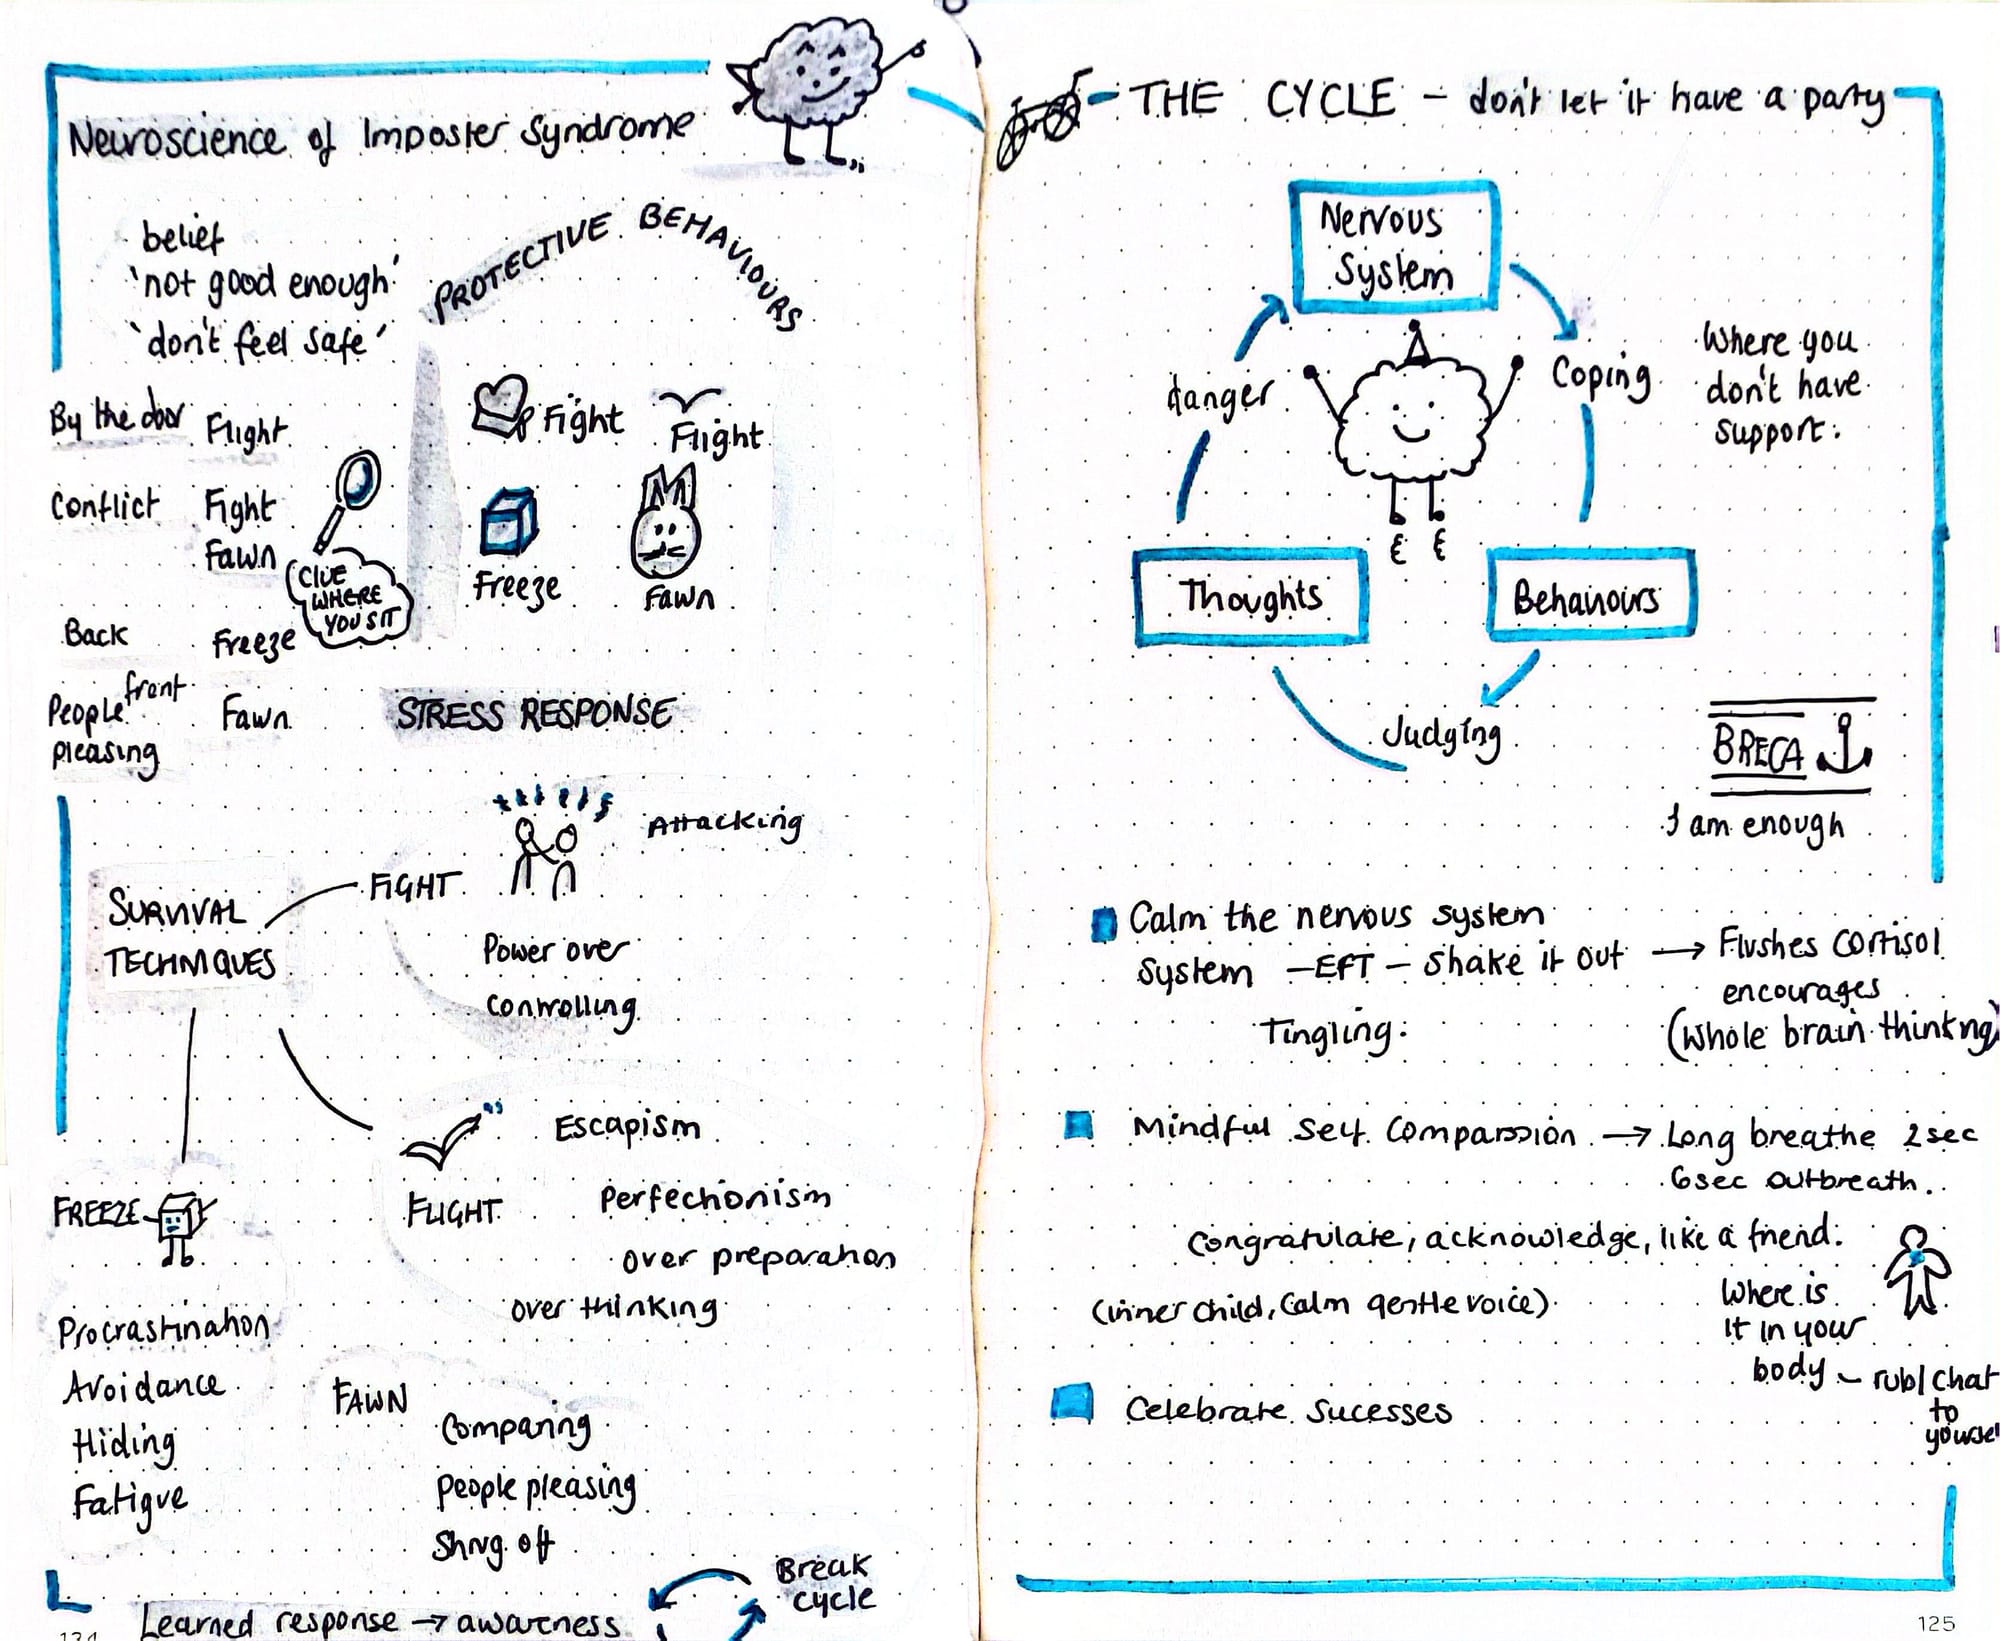 Neuroscience of Imposter Syndrome
belief
'not good enough'
'don't feel safe'
PROTECTIVE BEHAVIOURS
By the door Flight
Conflict Fight
Fawn
Back Freeze
front
People Fawn
pleasing
CLUE
WHERE
YOU SIT
Fight
Flight
Freeze
Fawn
STRESS RESPONSE
SURVIVAL
TECHNIQUES
FIGHT
Attacking
Power over
Controlling
FREEZE
Procrastination
Avoidance
Hiding
Fatigue
FLIGHT
Escapism
Perfectionism
over preparation
over thinking
FAWN
Comparing
People pleasing
Shrug off
Learned response → awareness
Break
cycle
THE CYCLE – don't let it have a party
Nervous
System
danger
Coping
Where you
don't have
support.
Thoughts
Behaviours
Judging
BRECA
I am enough
Calm the nervous system
System – EFT – Shake it out → Flushes cortisol
encourages
Tingling.
(Whole brain thinking)
Mindful Self Comparssion → Long breathe 2sec
6sec outbreath..
Congratulate, acknowledge, like a friend.
(inner child, Calm gentle voice)
Where is
it in your
body – rub/chat
to
Celebrate Sucesses
125